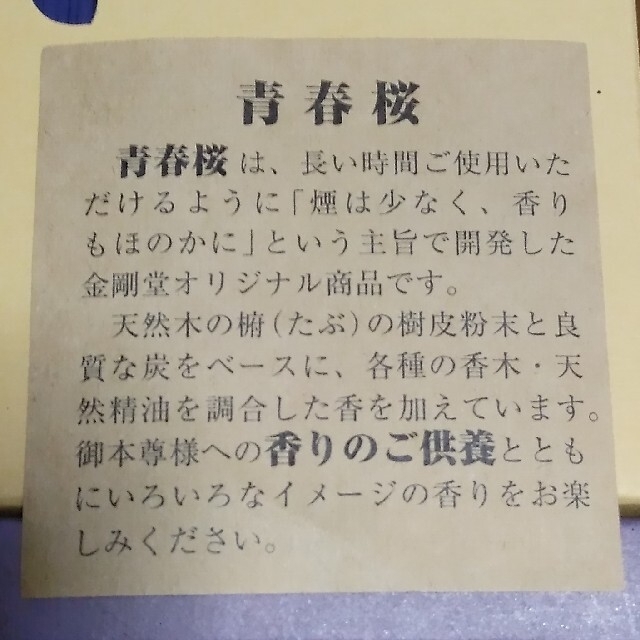 青春桜
青春桜は、長い時間ご使用いた
だけるように「煙は少なく、香り
もほのかに」という主旨で開発した
金剛堂オリジナル商品です。
天然木の椨(たぶ)の樹皮粉末と良
質な炭をベースに、各種の香木・天
然精油を調合した香を加えています。
御本尊様への香りのご供養ととも
にいろいろなイメージの香りをお楽
しみください。